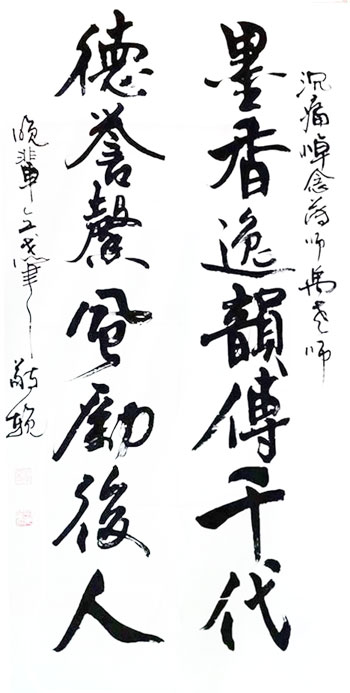 沉痛悼念师老师
墨香逸韻傳千代
德誉馨風勵後人
晚輩敬輓